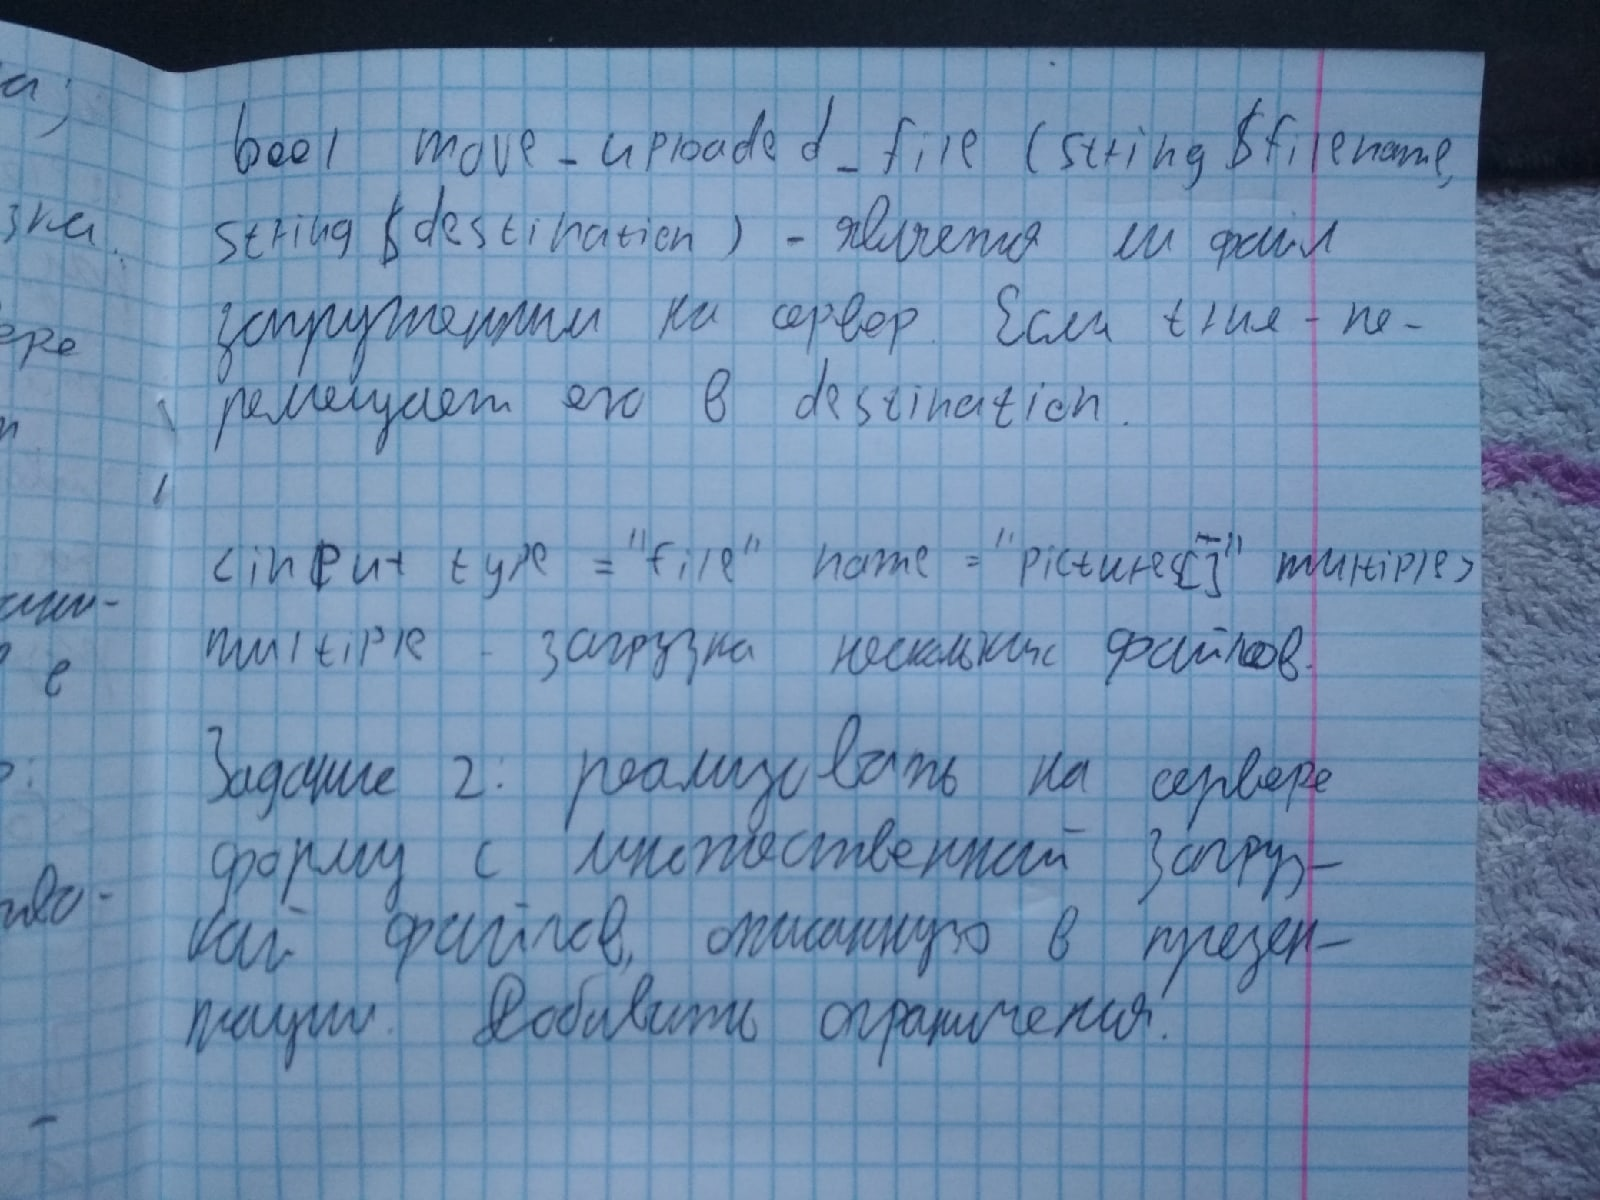 bool move_uploaded_file (string $filename,
string $destination) - является ли файл
загруженным на сервер. Если true - пе-
ремещает его в destination.
<input type = "file" name = "pictures[]" multiple>
multiple - загрузка нескольких файлов.
Задание 2: реализовать на сервере
форму с множественной загруз-
кой файлов, описанную в презен-
тации. Добавить ограничения.